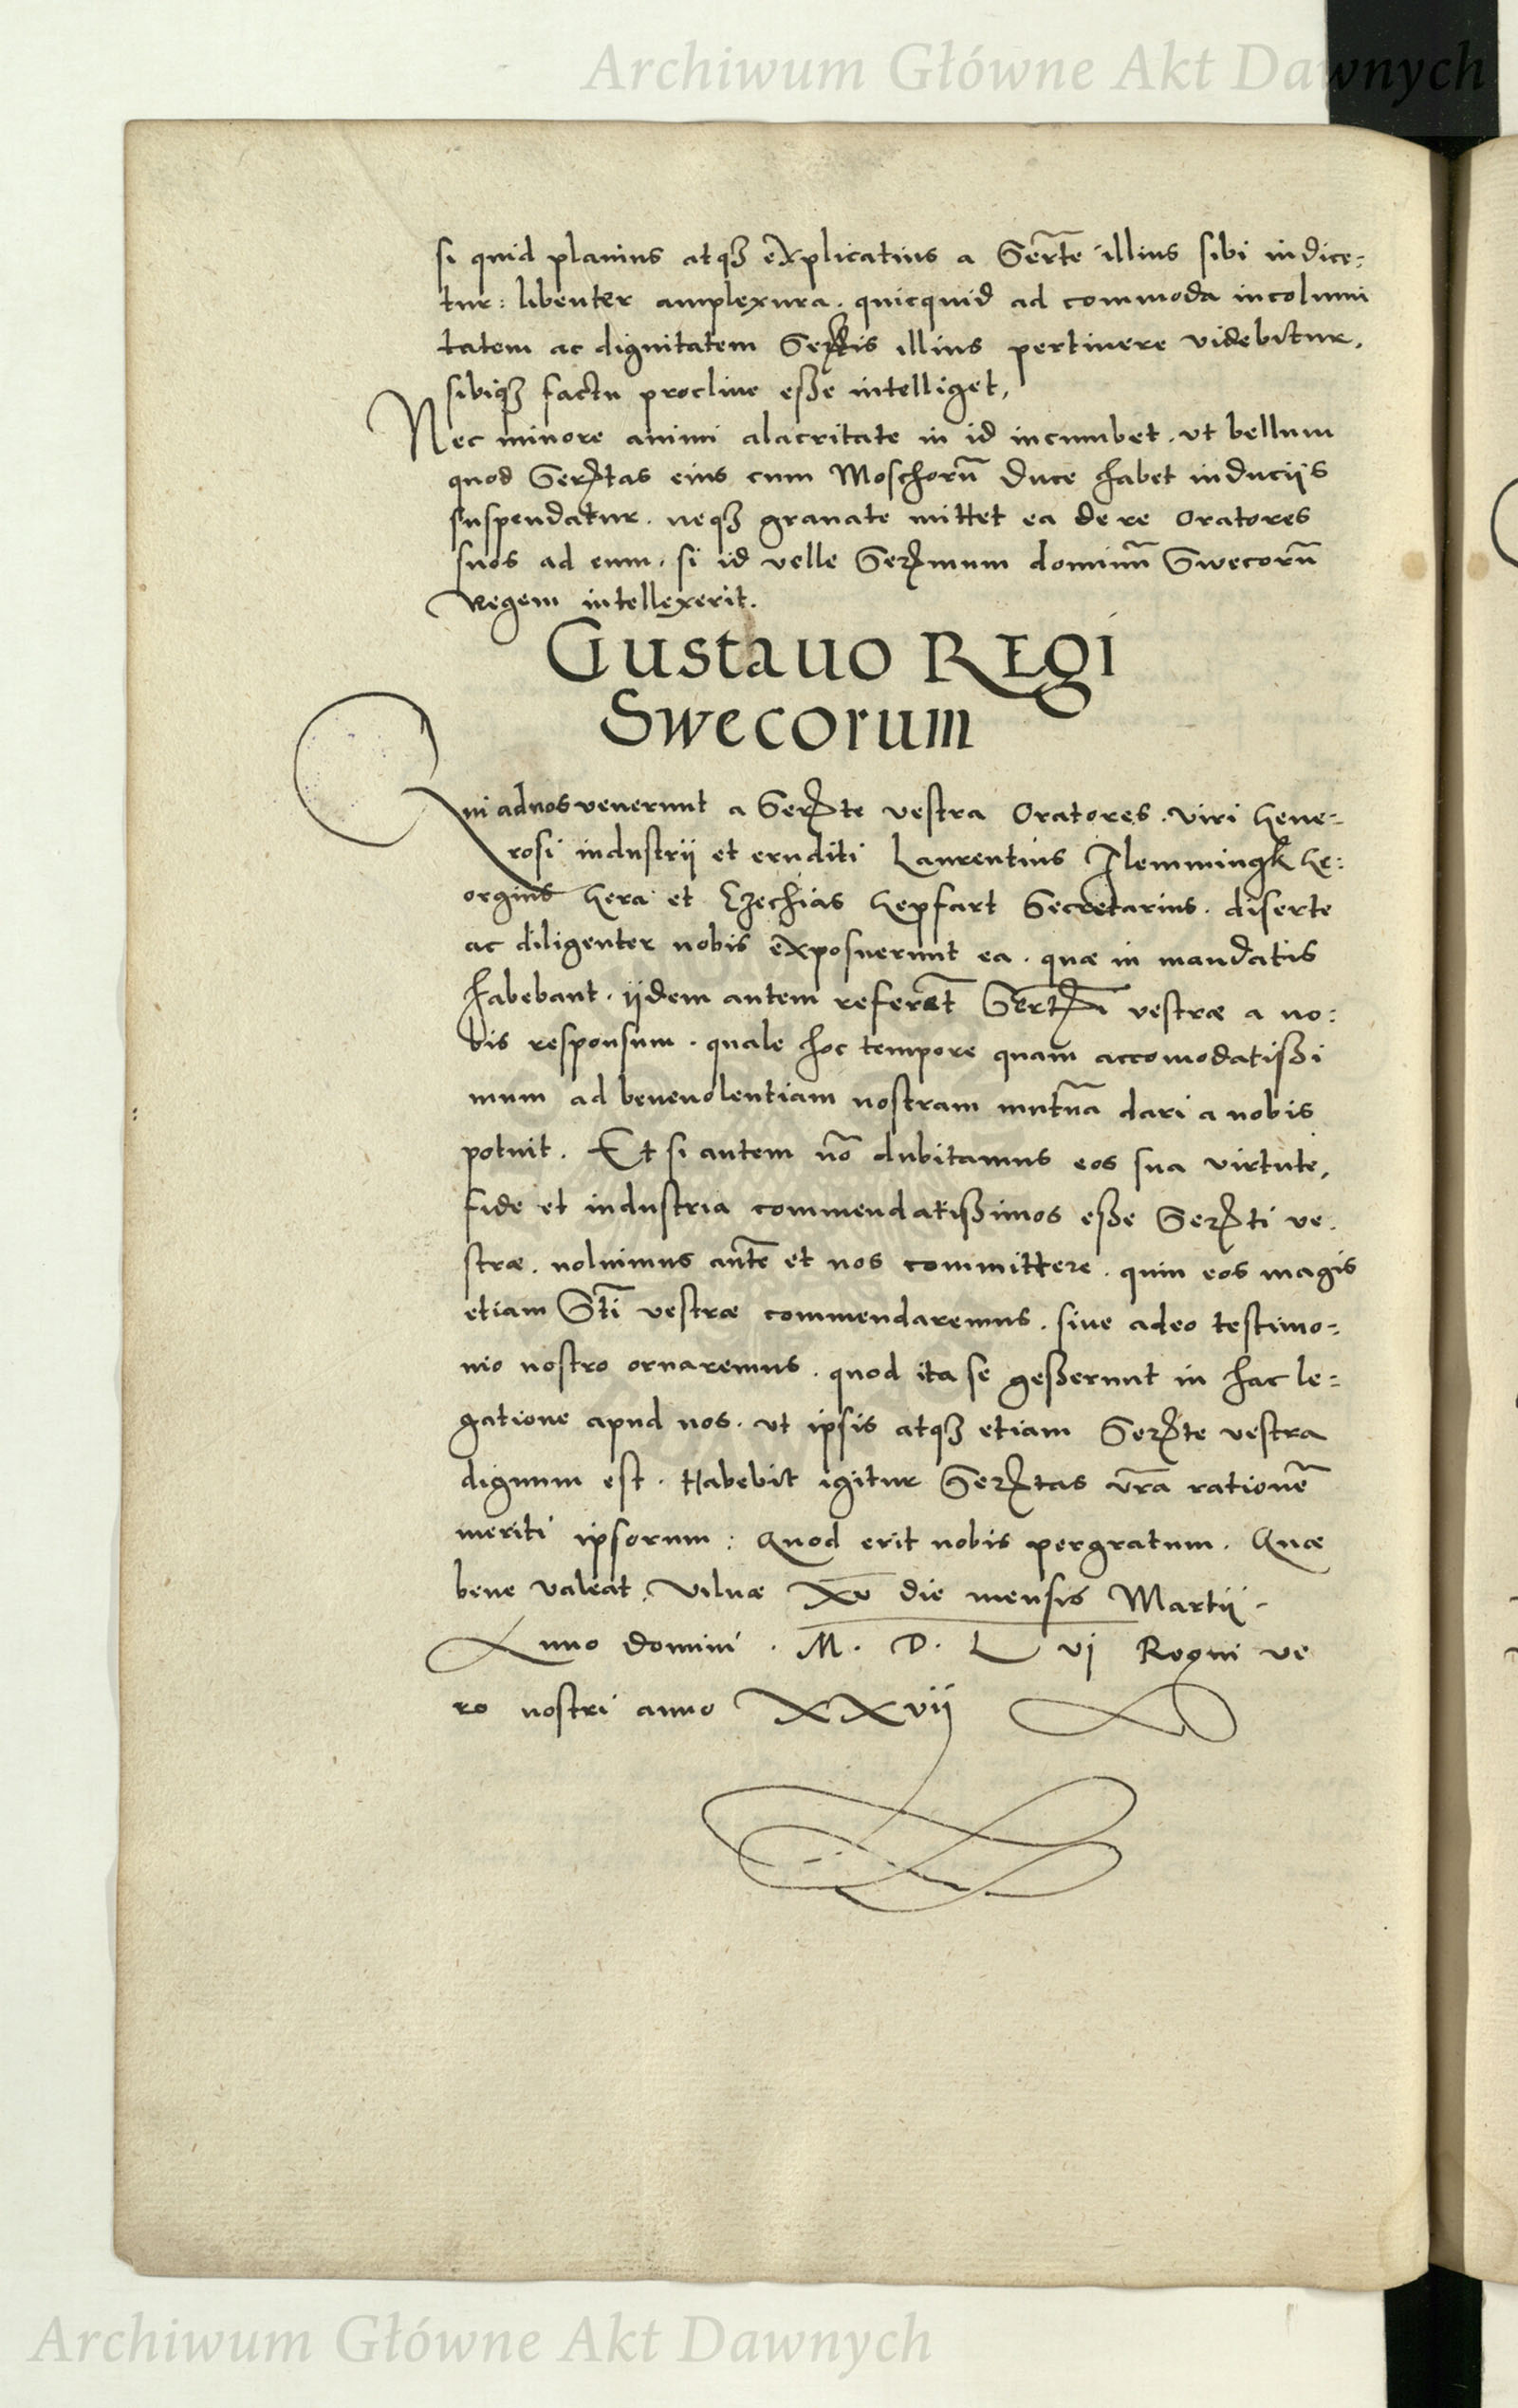 Archiwum Główne Akt Dawnych
si quid planius atqȝ explicatius a Sertẽ illius sibi indice-
tur: libenter amplexura. quicquid ad commoda incolumi
tatem ac dignitatem Sertis illius pertinere videbitur,
sibiqȝ factu proclive eße intelliget,
Nec minore animi alacritate in id incumbet. ut bellum
quod Sertas eius cum Moschorũ Duce habet induciis
suspendatur. neqȝ gravate mittet ea de re Oratores
suos ad eum. si id velle Sermum dominũ Swecorũ
Regem intellexerit.
Gustavo REgi
Swecorum
Qui ad nos venerunt a Serte vestra Oratores. viri Gene-
rosi industrii et eruditi Laurentius Flemmingk Ge:
orgius Gera et Ezechias Gepfart Secretarius. diserte
ac diligenter nobis exposuerunt ea. quæ in mandatis
habebant. iidem autem referẽt Serti vestræ a no:
bis responsum. quale hoc tempore quam accomodatißi
mum ad benevolentiam nostram mutuã dari a nobis
potuit. Et si autem nõ dubitamus eos sua virtute,
fide et industria commendatißimos eße Serti ve.
stræ. noluimus autẽ et nos committere. quin eos magis
etiam Stĩ vestræ commendaremus. sive adeo testimo-
nio nostro ornaremus. quod ita se geßerunt in hac le-
gatione apud nos. ut ipsis atqȝ etiam Serte vestra
dignum est. Habebit igitur Sertas vr̃a rationẽ
meriti ipsorum: Quod erit nobis pergratum. Quæ
bene valeat. Vilnæ Xv die mensis Martii-
Anno domini. M. D. L vj Regni ve
ro nostri anno XXvij
Archiwum Główne Akt Dawnych